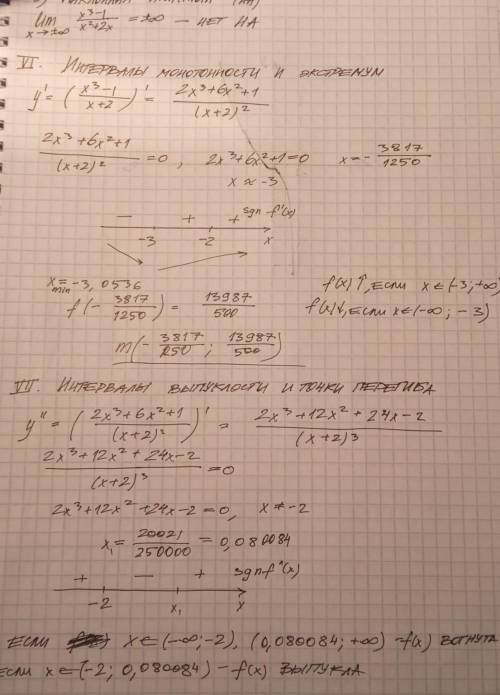 lim x→±∞ (x³-1)/(x²+2x) = ±∞ – НЕТ НА
VI. ИНТЕРВАЛЫ МОНОТОННОСТИ И ЭКСТРЕМУМ
y' = ((x³-1)/(x+2))' = (2x³+6x²+1)/(x+2)²
(2x³+6x²+1)/(x+2)² = 0, 2x³+6x²+1=0 x=-3817/1250
x ≈ -3
- + + sgn f'(x)
-3 -2 x
x min = -3,0536
f(x)↑, ЕСЛИ x∈(-3;+∞)
f(-3817/1250) = 13987/500
f(x)↓, ЕСЛИ x∈(-∞; -3)
m(-3817/1250; 13987/500)
VII. ИНТЕРВАЛЫ ВЫПУКЛОСТИ И ТОЧКИ ПЕРЕГИБА
y'' = ((2x³+6x²+1)/(x+2)²)' = (2x³+12x²+24x-2)/(x+2)³
(2x³+12x²+24x-2)/(x+2)³ = 0
2x³+12x²+24x-2=0, x≠-2
x₁ = 20021/250000 = 0,080084
+ - + sgn f''(x)
-2 x₁ x
ЕСЛИ x∈(-∞;-2), (0,080084;+∞) – f(x) ВОГНУТА
ЕСЛИ x∈(-2; 0,080084) – f(x) ВЫПУКЛА